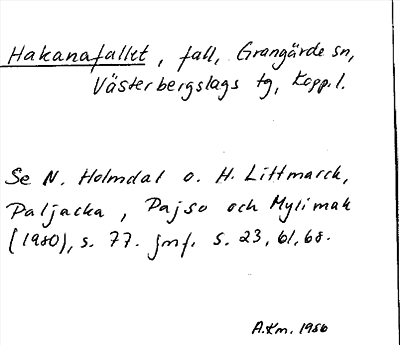 Hakanafallet, fall, Grangärde sn,
Västerbergslags tg, Kopp. l.
Se N. Holmdal o. H. Littmarck,
Paljacka, Pajso och Mylimak
(1980), s. 77. Jmf. s. 23, 61, 68.
A.Km. 1986